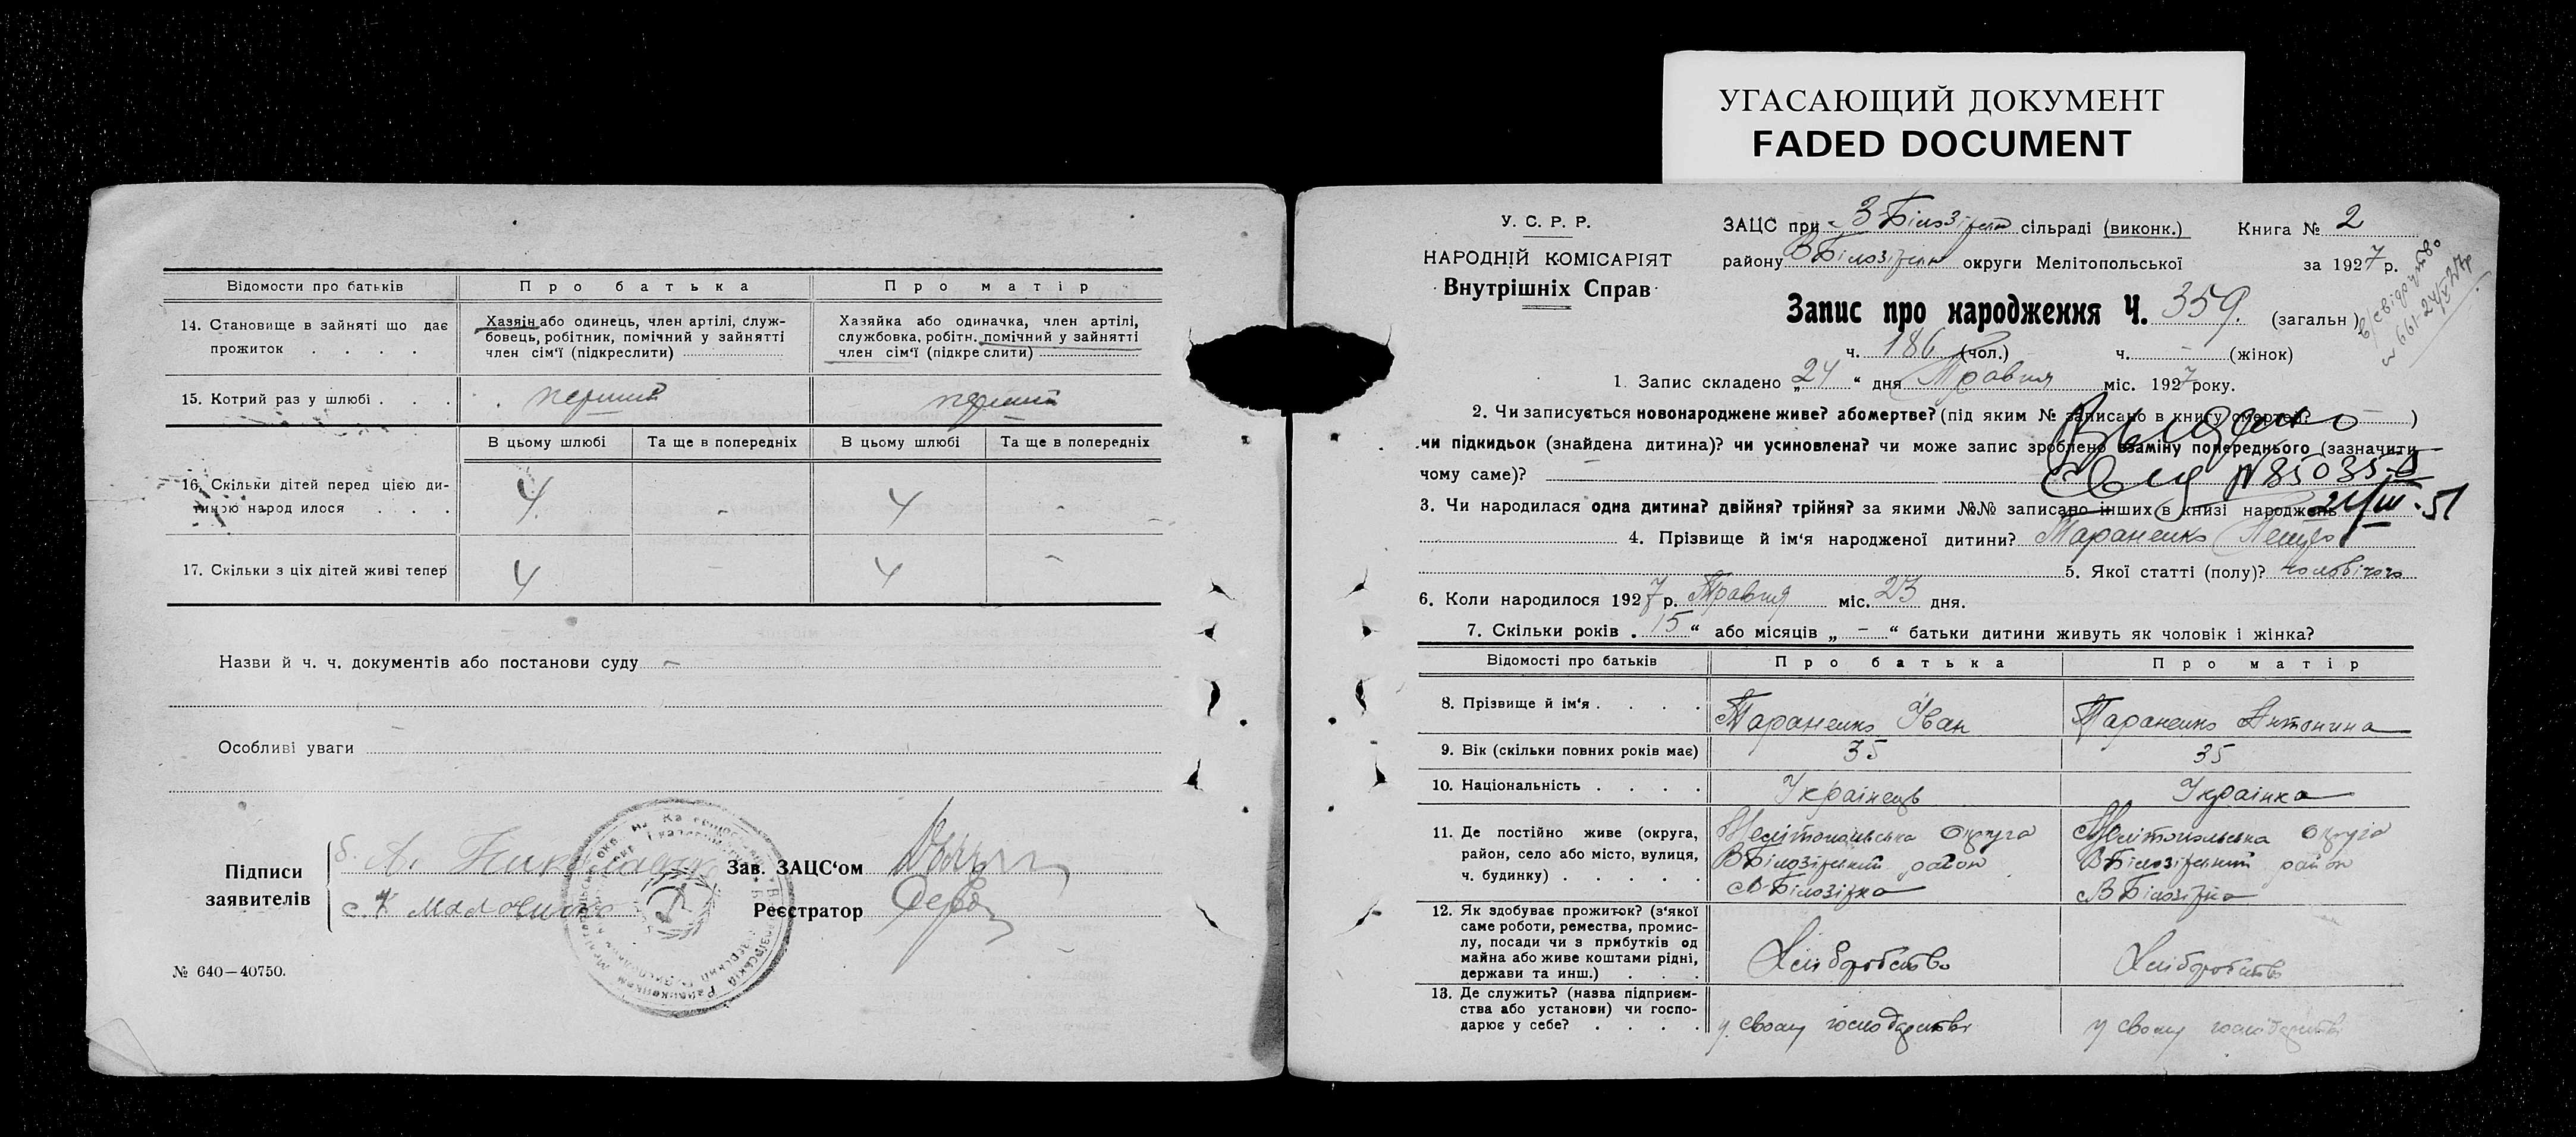 УГАСАЮЩИЙ ДОКУМЕНТ
FADED DOCUMENT
Відомости про батьків
Про батька
Про матір
14. Становище в зайняті що дає прожиток . . . .
Хазяін або одинець, член артілі, служ-
бовець, робітник, помічний у зайнятті
член сім'ї (підкреслити)
Хазяйка або одиначка, член артілі,
службовка, робітн. помічний у зайнятті
член сім'ї (підкреслити)
15. Котрий раз у шлюбі . . .
перший
перший
В цьому шлюбі
Та ще в попередніх
В цьому шлюбі
Та ще в попередніх
16. Скільки дітей перед цією ди-
тиною народилося . . .
4 - 4 -
17. Скільки з ціх дітей живі тепер
4 - 4 -
Назви й ч. ч. документів або постанови суду -
Особливі уваги
Підписи
заявителів
Зав. ЗАЦС'ом
Реєстратор
№ 640—40750.
У. С. Р. Р.
НАРОДНІЙ КОМІСАРІЯТ
Внутрішніх Справ
ЗАЦС при З-Білозірськ сільраді (виконк.)
Книга № 2
району В Білозірськ округи Мелітопольської
за 1927 р.
Запис про народження Ч. 359. (загальн)
ч. 186 (чол.) ч. - (жінок)
№ 661-24/V 27р
1. Запис складено „24“ дня Травня міс. 1927 року.
2. Чи записується новонароджене живе? або мертве? (під яким № записано в книгу смертей? - )
чи підкидьок (знайдена дитина)? чи усиновлена? чи може запис зроблено взаміну попереднього (зазначити
чому саме)? -
Выдано
№ 85035
21/III-51
3. Чи народилася одна дитина? двійня? трійня? за якими №№ записано інших в книзі народжень
4. Прізвище й ім'я народженої дитини? Тараненко
5. Якої статті (полу)? чоловічого
6. Коли народилося 1927 р. Травня міс. 23 дня.
7. Скільки років „15“ або місяців „-“ батьки дитини живуть як чоловік і жінка?
Відомості про батьків
Про батька
Про матір
8. Прізвище й ім'я . . . .
Тараненко Іван
Тараненко Антонина
9. Вік (скільки повних років має)
35
35
10. Національність . . . .
Украінець
Украінка
11. Де постійно живе (округа,
район, село або місто, вулиця,
ч. будинку) . . . . .
Мелітопольська Округа
В Білозірський район
с В-Білозірка
Мелітопольська округа
В Білозірський район
с В Білозірка
12. Як здобуває прожиток? (з'якої
саме роботи, ремества, промис-
лу, посади чи з прибутків од
майна або живе коштами рідні,
держави та инш.) . . .
Хліборобство
Хліборобство
13. Де служить? (назва підприєм-
ства або установи) чи госпо-
дарює у себе? . . . .
у свому господарстві
у свому господарстві